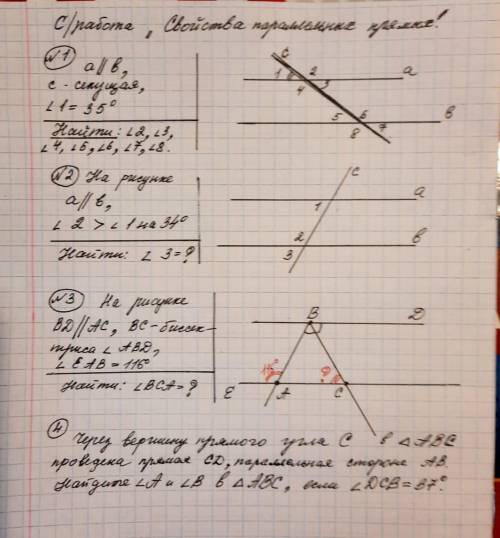 С/работа, Свойства параллельных прямых!
№1
a ∥ b,
c - секущая,
∠1 = 35°
Найти: ∠2, ∠3,
∠4, ∠5, ∠6, ∠7, ∠8.
c
1 2 a
4 3
5 6 b
8 7
№2 На рисунке
a ∥ b,
∠2 > ∠1 на 34°
Найти: ∠3 = ?
c
1 a
2 b
3
№3 На рисунке
BD ∥ AC, BC - биссек-
триса ∠ABD,
∠EAB = 116°
Найти: ∠BCA = ?
B D
116° ?
E A C
4 Через вершину прямого угла C в △ABC
проведена прямая CD, параллельная стороне AB.
Найдите ∠A и ∠B в △ABC, если ∠DCB = 37°.